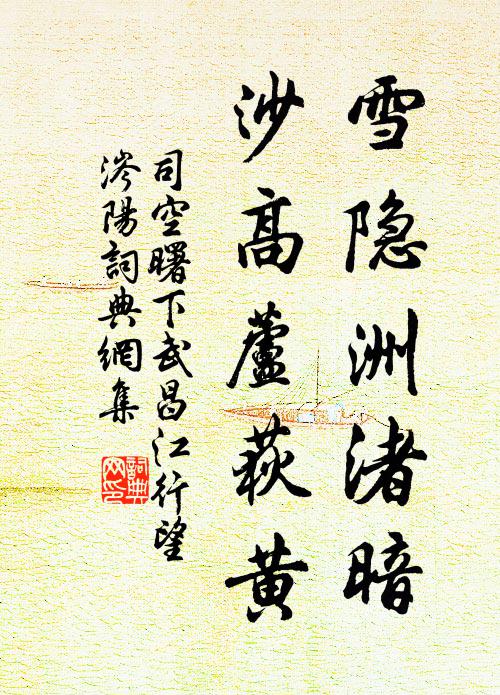 雪隐洲渚暗
沙高蘆荻黄
司空曙下武昌江行望
涔陽詞典網集
詞典网印